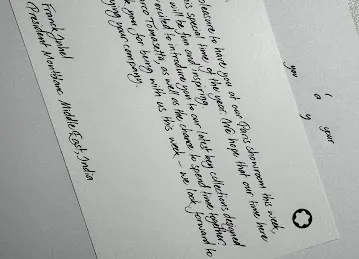 pleasure to have you at our Paris showroom this week,
this special time of the year. We hope that our time here
will be fun and inspiring.
excited to introduce you to our latest key collections designed
Marco Tomasetta, as well as the chance to spend time together.
you for being with us this week – we look forward to
your company.
Franck Juhel
President Montblanc Middle East, India
you
a
your